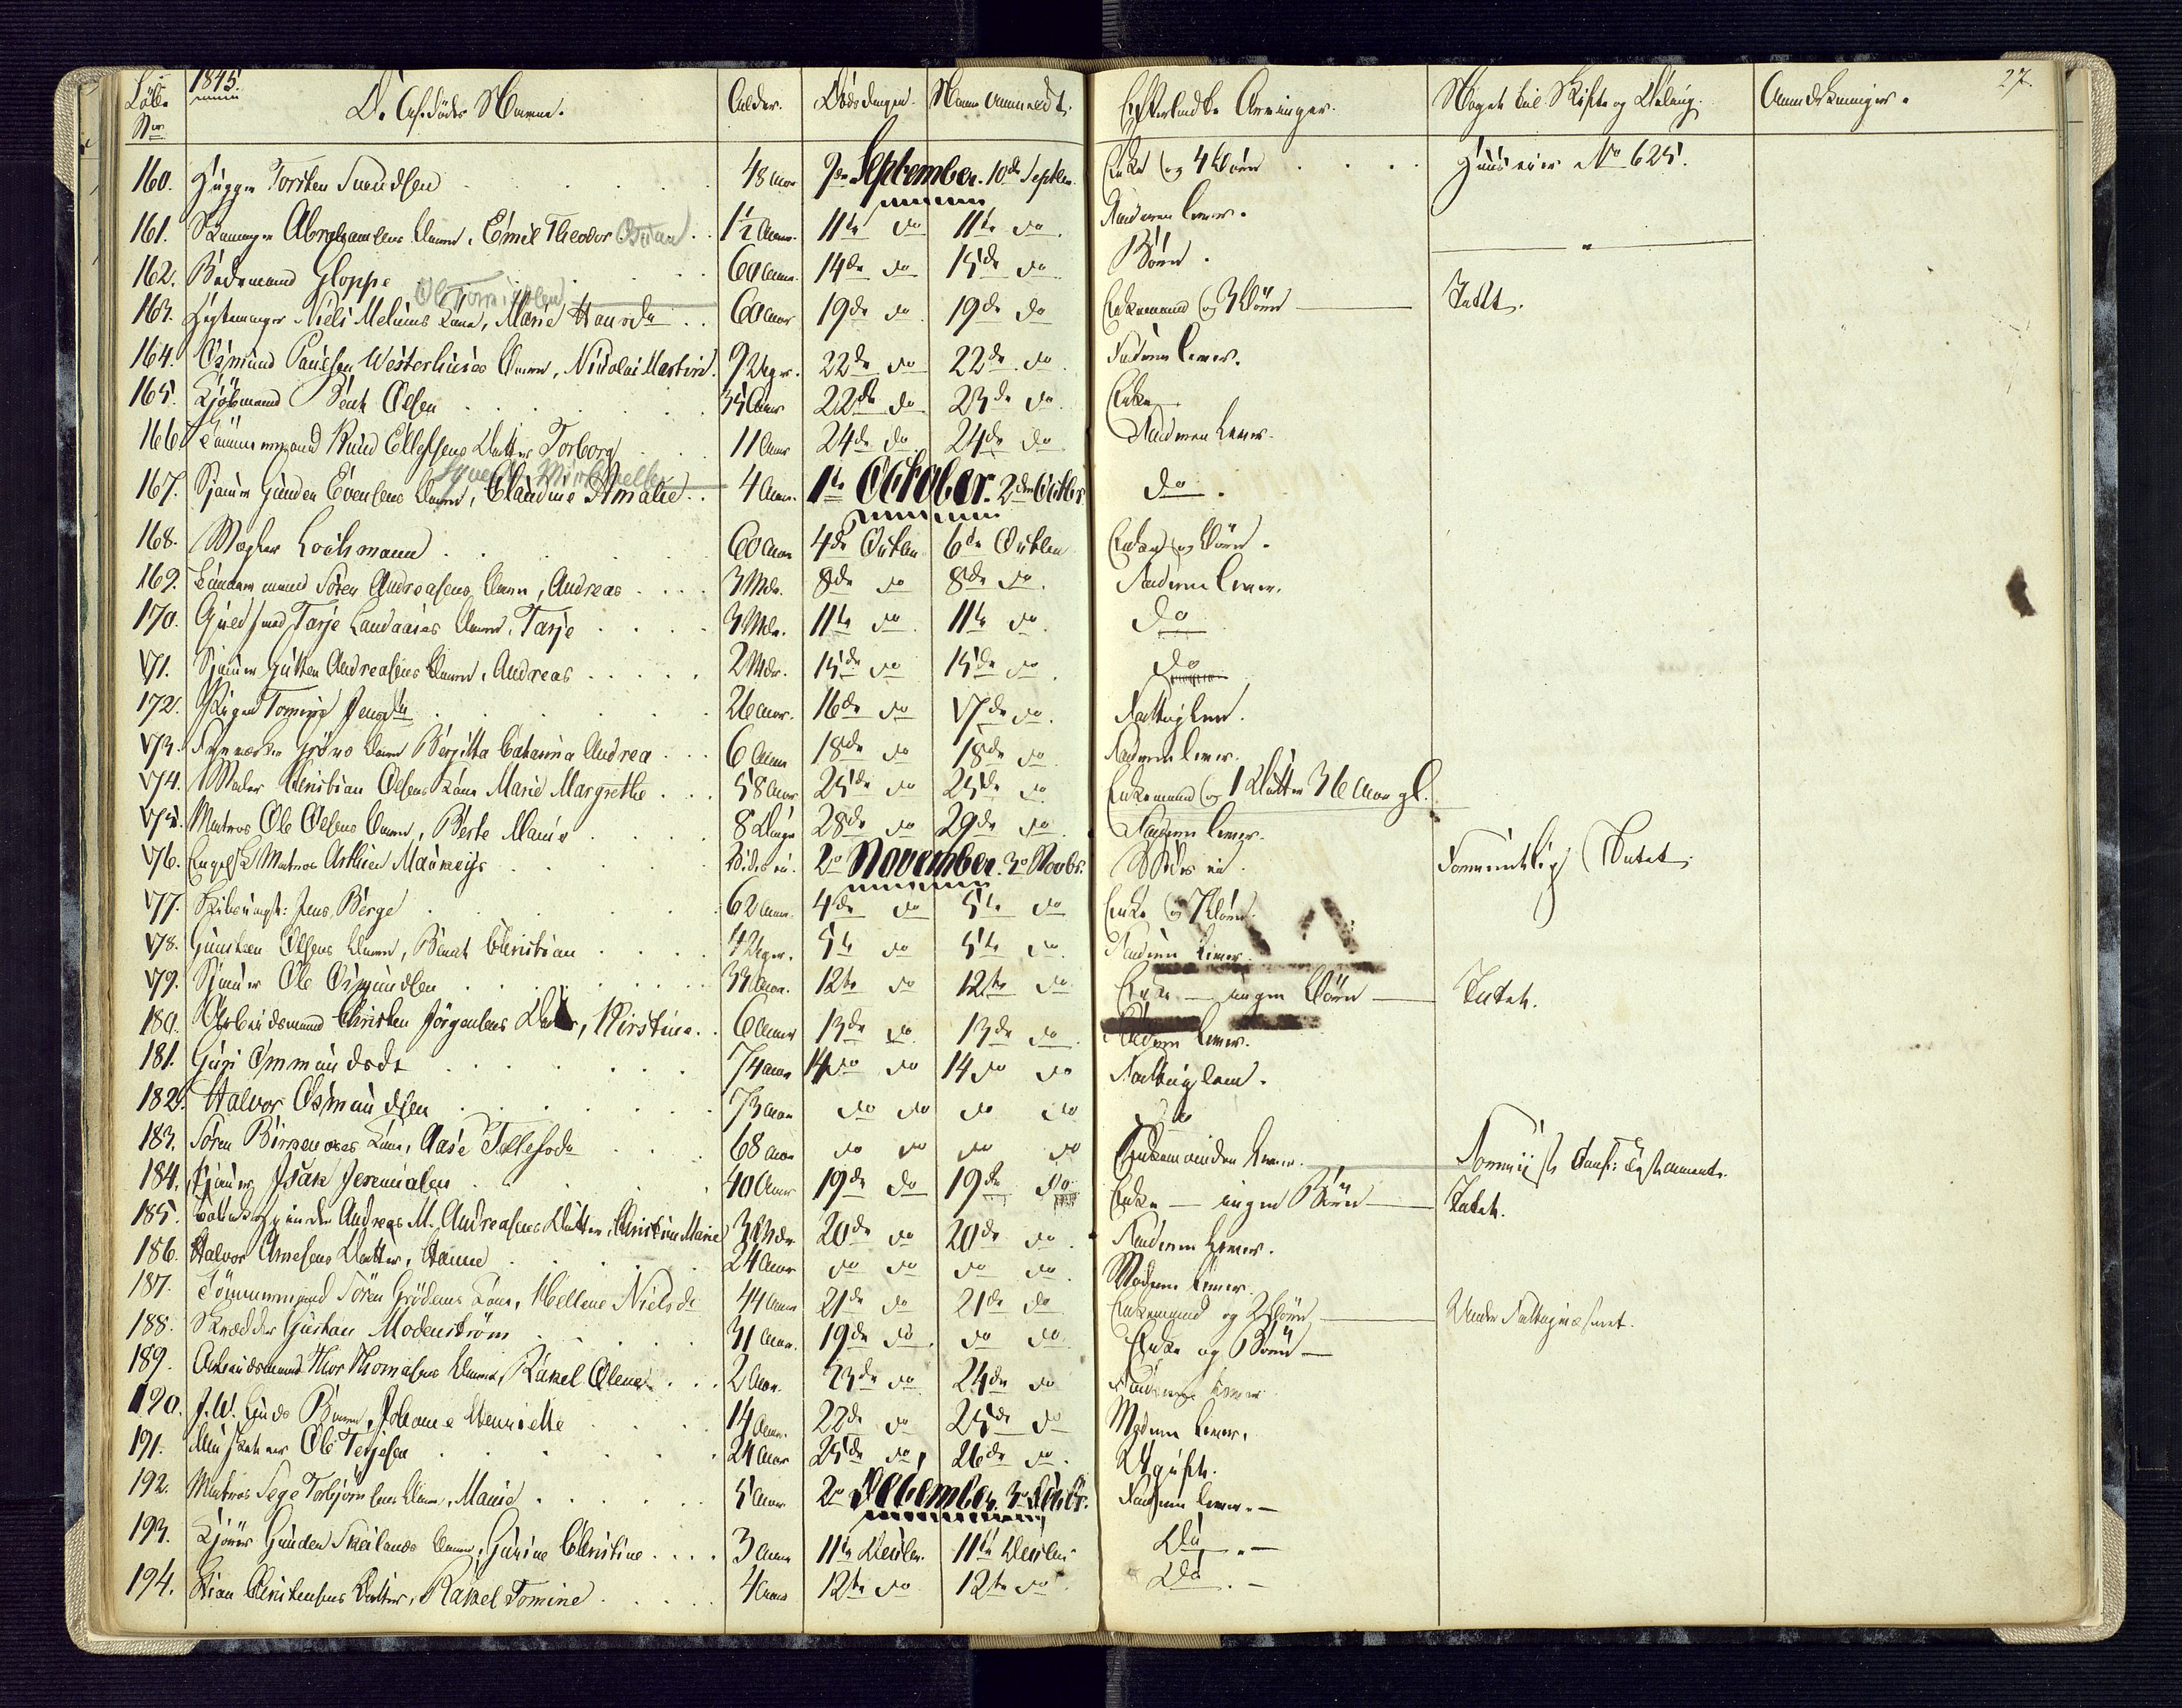 1845.
27.
Löbe No. De Afdödes Navne. Alder. Dödsdagen. Naar anmeldt. Efterladte Arvinger. Noget til Skifte og Deling. Anmærkninger.
160. Hugger Torsten Svendsen 48 Aar 9de September. 10de Septbr. Enke og 4 Börn Huuseier No 625.
161. Abrahamsens Barn, Emil Theodor 1½ Aar. 11te do 11te do. Faderen lever.
162. Bademand Gloppe 60 Aar. 14de do 15de do Börn.
163. Niels Melius Kone, Marie Hansdr 60 Aar 19de do 19de do Enkemand og 3 Börn Intet.
164. Osmund Paulsen Westerhuses Barn, Nicolai Martin. 9 Uger. 22de do 22de do Faderen lever.
165. Kjöbmand Bent Olsen 35 Aar 22de do 23de do. Enke
166. Tömmermand Knud Ellefsens Datter Torborg 11 Aar 24de do 24de do Faderen lever.
167. Sjömand Gunder Evensens Barn, Claudine Amalie 4 Aar. 1te October. 2den Octbr. do.
168. Mægler Lochmann 60 Aar 4de Octbr 6te Octbr Enke og Börn.
169. Tömmermand Sören Andreasens Barn, Andreas 3 Mdr. 8de do 8de do. Faderen lever.
170. Guldsmed Tarje Landaases Barn, Tarje 3 Mdr. 11te do. 11te do. do
171. Sjömand Gutten Andreasens Barn, Andreas 2 Mdr. 15de do 15de do. do
172. Pigen Tomine Jensdr 26 Aar. 16de do 17de do. Fattiglem.
173. Gröns Barn Bergitta Catharina Andrea 6 Aar 18de do 18de do. Faderen lever.
174. Maler Christian Olsens Kone Marie Margrethe 58 Aar 25de do 25de do Enkemand og 1 Datter 36 Aar gl.
175. Matros Ole Olsens Barn, Berte Marie 8 Dage 28de do 29de do. Faderen lever.
176. Engelsk Matros Arthur Vides ei. 2de November. 3de Novbr. Vides ei. Formentlig Intet.
177. Jens Berge 62 Aar. 4de do 5te do Enke og 7 Börn.
178. Olsens Barn, Bernt Christian 4 Uger. 5te do 5te do. Faderen lever.
179. Sjömand Ole Osmundsen 33 Aar. 12te do 12te do Enke — ingen Börn — Intet.
180. Arbeidsmand Christen Jörgensens Datter, Kirstine 6 Aar 13de do 13de do. Faderen lever.
181. Guri Ommundsdr 74 Aar 14de do 14de do Fattiglem.
182. Halvor Osmundsen 73 Aar do do do do do
183. Sören Birkenæs Kone, Aase Tellefsdr 68 Aar do do do do Enkemanden lever. Testament.
184. Sjömand Isak Jeremiasen 40 Aar 19de do 19de do Enke — ingen Börn — Intet.
185. Andreas M. Andreasens Datter, Christine Marie 3 Mdr 20de do 20de do. Faderen lever.
186. Halvor Arnesens Datter, Hanne 24 Aar do do do do. Moderen lever.
187. Tömmermand Sören Grödems Kone, Mellene Nielsdr 44 Aar 21de do 21de do Enkemand og 2 Börn — Under Fattigvæsenet.
188. Skrædder Gustav Modenström 31 Aar. 19de do. do do. Enke og Börn —
189. Arbeidsmand Thor Thomasens Barn, Rakel Olene 2 Aar. 23de do 24de do Faderen lever
190. J. W. Barn, Johanne Henriette 14 Aar. 22de do 25de do Moderen lever.
191. Musketeer Ole Terjesen 24 Aar 25de do, 26de do. Ugift.
192. Matros Tege Torbjörnsens Barn, Marie 5 Aar 2de December. 3de Decbr. Faderen lever. —
193. Gunder Skeilands Barn, Gurine Christine 3 Aar 11te Decbr. 11te Decbr Do. —
194. Stian Christensens Datter, Rakel Tomine 4 Aar 12te do 12te do. Do. —